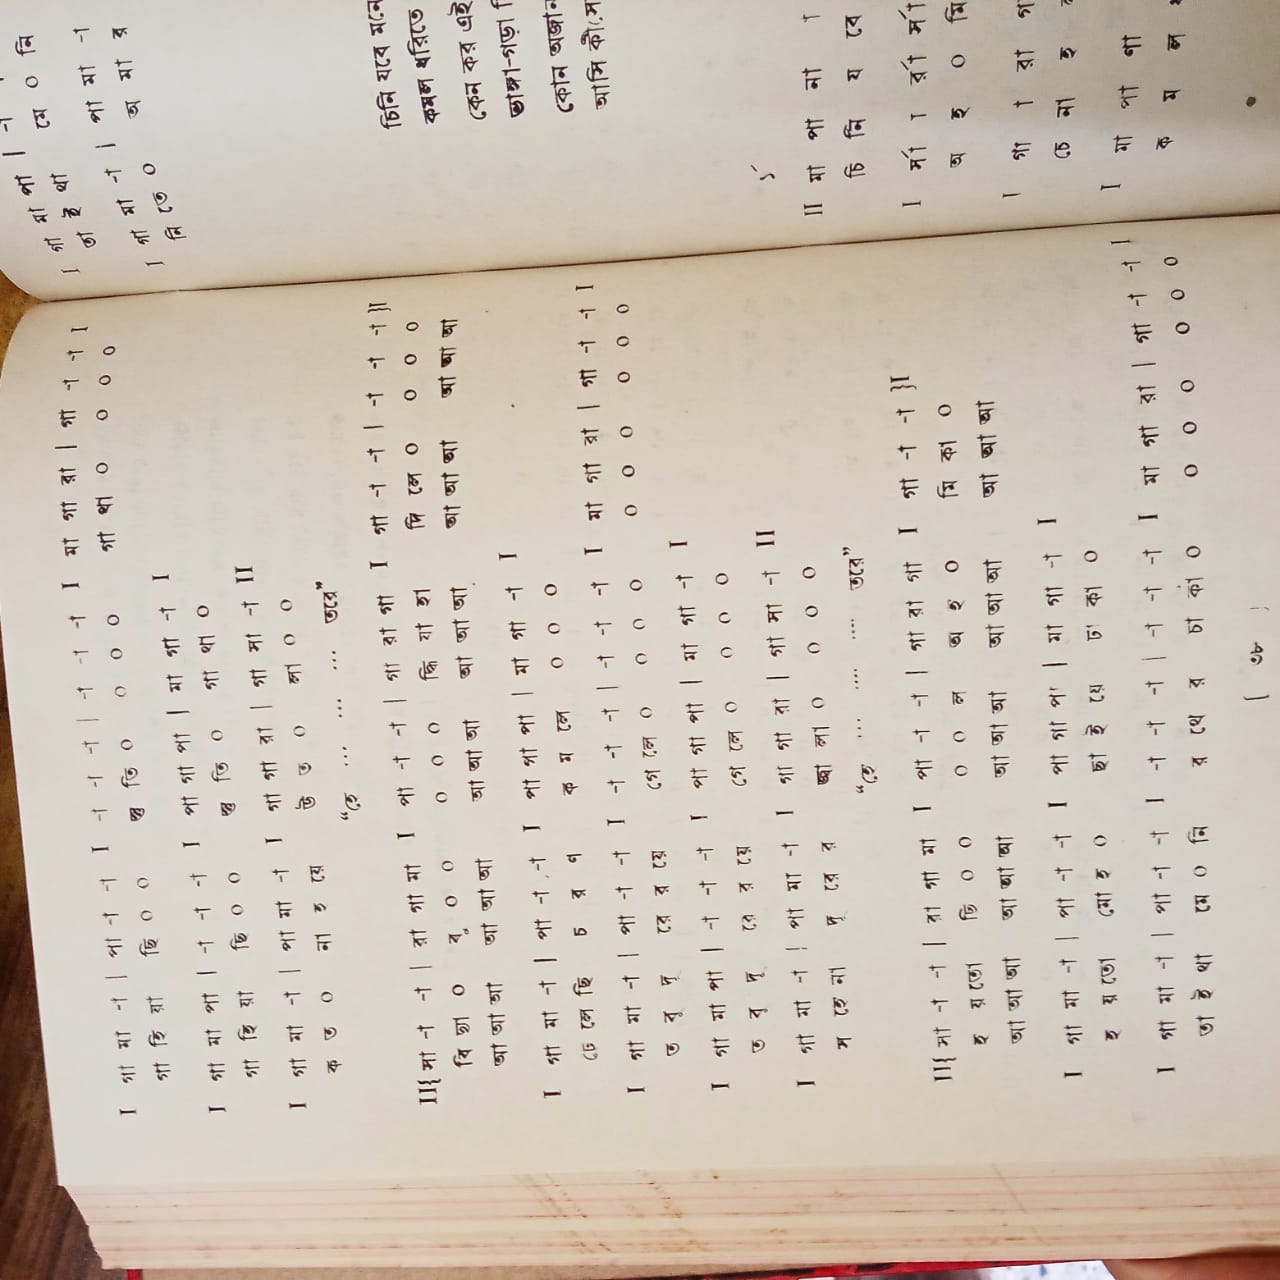 I গা মা -া | পা -া -া I -া -া -া | -া -া -া I মা গা রা | গা -া -া I
গা হি য়া ছি ০ ০ স্তু তি ০ ০ ০ ০ গা থা ০ ০ ০ ০
I গা মা পা | -া -া -া I পা গা পা | মা গা -া I
গা হি য়া ছি ০ ০ স্তু তি ০ গা থা ০
I গা মা -া | পা মা -া I গা গা রা | গা সা -া II
ক ত ০ না হ য়ে উ ত ০ লা ০ ০
“হে ... .... ... তরে”
II{ সা -া -া | রা গা মা I পা -া -া | গা রা গা I গা -া -া | -া -া -া }I
বি ছা ০ বু ০ ০ ০ ০ ০ হি যা হা দি লে ০ ০ ০ ০
আ আ আ আ আ আ আ আ আ আ আ আ আ আ আ আ আ আ
I গা মা -া | পা -া -া I পা পা পা | মা গা -া I
ঢে লে ছি চ র ণ ক ম লে ০ ০ ০
I গা মা -া | পা -া -া I -া -া -া | -া -া -া I মা গা রা | গা -া -া I
ত বু দূ রে র য়ে গে লে ০ ০ ০ ০ ০ ০ ০ ০ ০ ০
I গা মা পা | -া -া -া I পা গা পা | মা গা -া I
ত বু দূ রে র য়ে গে লে ০ ০ ০ ০
I গা মা -া | পা মা -া I গা গা রা | গা সা -া II
স হে না দূ রে র জ্বা লা ০ ০ ০ ০
“হে ... ..... .... তরে”
II{ সা -া -া | রা গা মা I পা -া -া | গা রা গা I গা -া -া }I
হ য় তো ছি ০ ০ ০ ০ ল অ হ ০ মি কা ০
আ আ আ আ আ আ আ আ আ আ আ আ আ আ আ
I গা মা -া | পা -া -া I পা গা পা | মা গা -া I
হ য় তো মো হ ০ ছা ই য়ে ঢা কা ০
I গা মা -া | পা -া -া I -া -া -া | -া -া -া I মা গা রা | গা -া -া I
তা ই থা মে ০ নি র থে র চা কা ০ ০ ০ ০ ০ ০ ০
[ ৩৮ ]
I গা মা পা | -া
তা ই থা মে ০ নি
I গা মা -া | পা মা -া
নি তে ০ অ মা র
চিনি যবে মনে
কমল ধরিতে
কেন কর এই
ভাঙ্গা-গড়া
কোন অজান
আসি কী
II মা পা না া
চি নি য বে
I র্সা া র্রা র্সা
অ হ ০ মি
I গা া রা
চে না হ
I মা পা ণা
ক ম ল